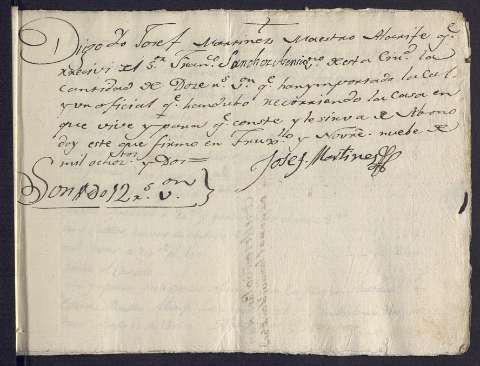 Digo Yo Josef Martinez Maestro Alarife q.e
Rrecivi del S.or Fran.co Sanchez vecino desta Ciu.d la
Cantidad de Doze r.s v.on q.e han ymportado la Cal
y un oficial q.e handubo recorriendo la Casa en
que vive y para q.e conste y lo sirva de Abono
doy este que firmo en Trux.llo y Nobre. nuebe de
mil ochos.tos y Dos=
Josef Martinez
Son 12 r.s v.on